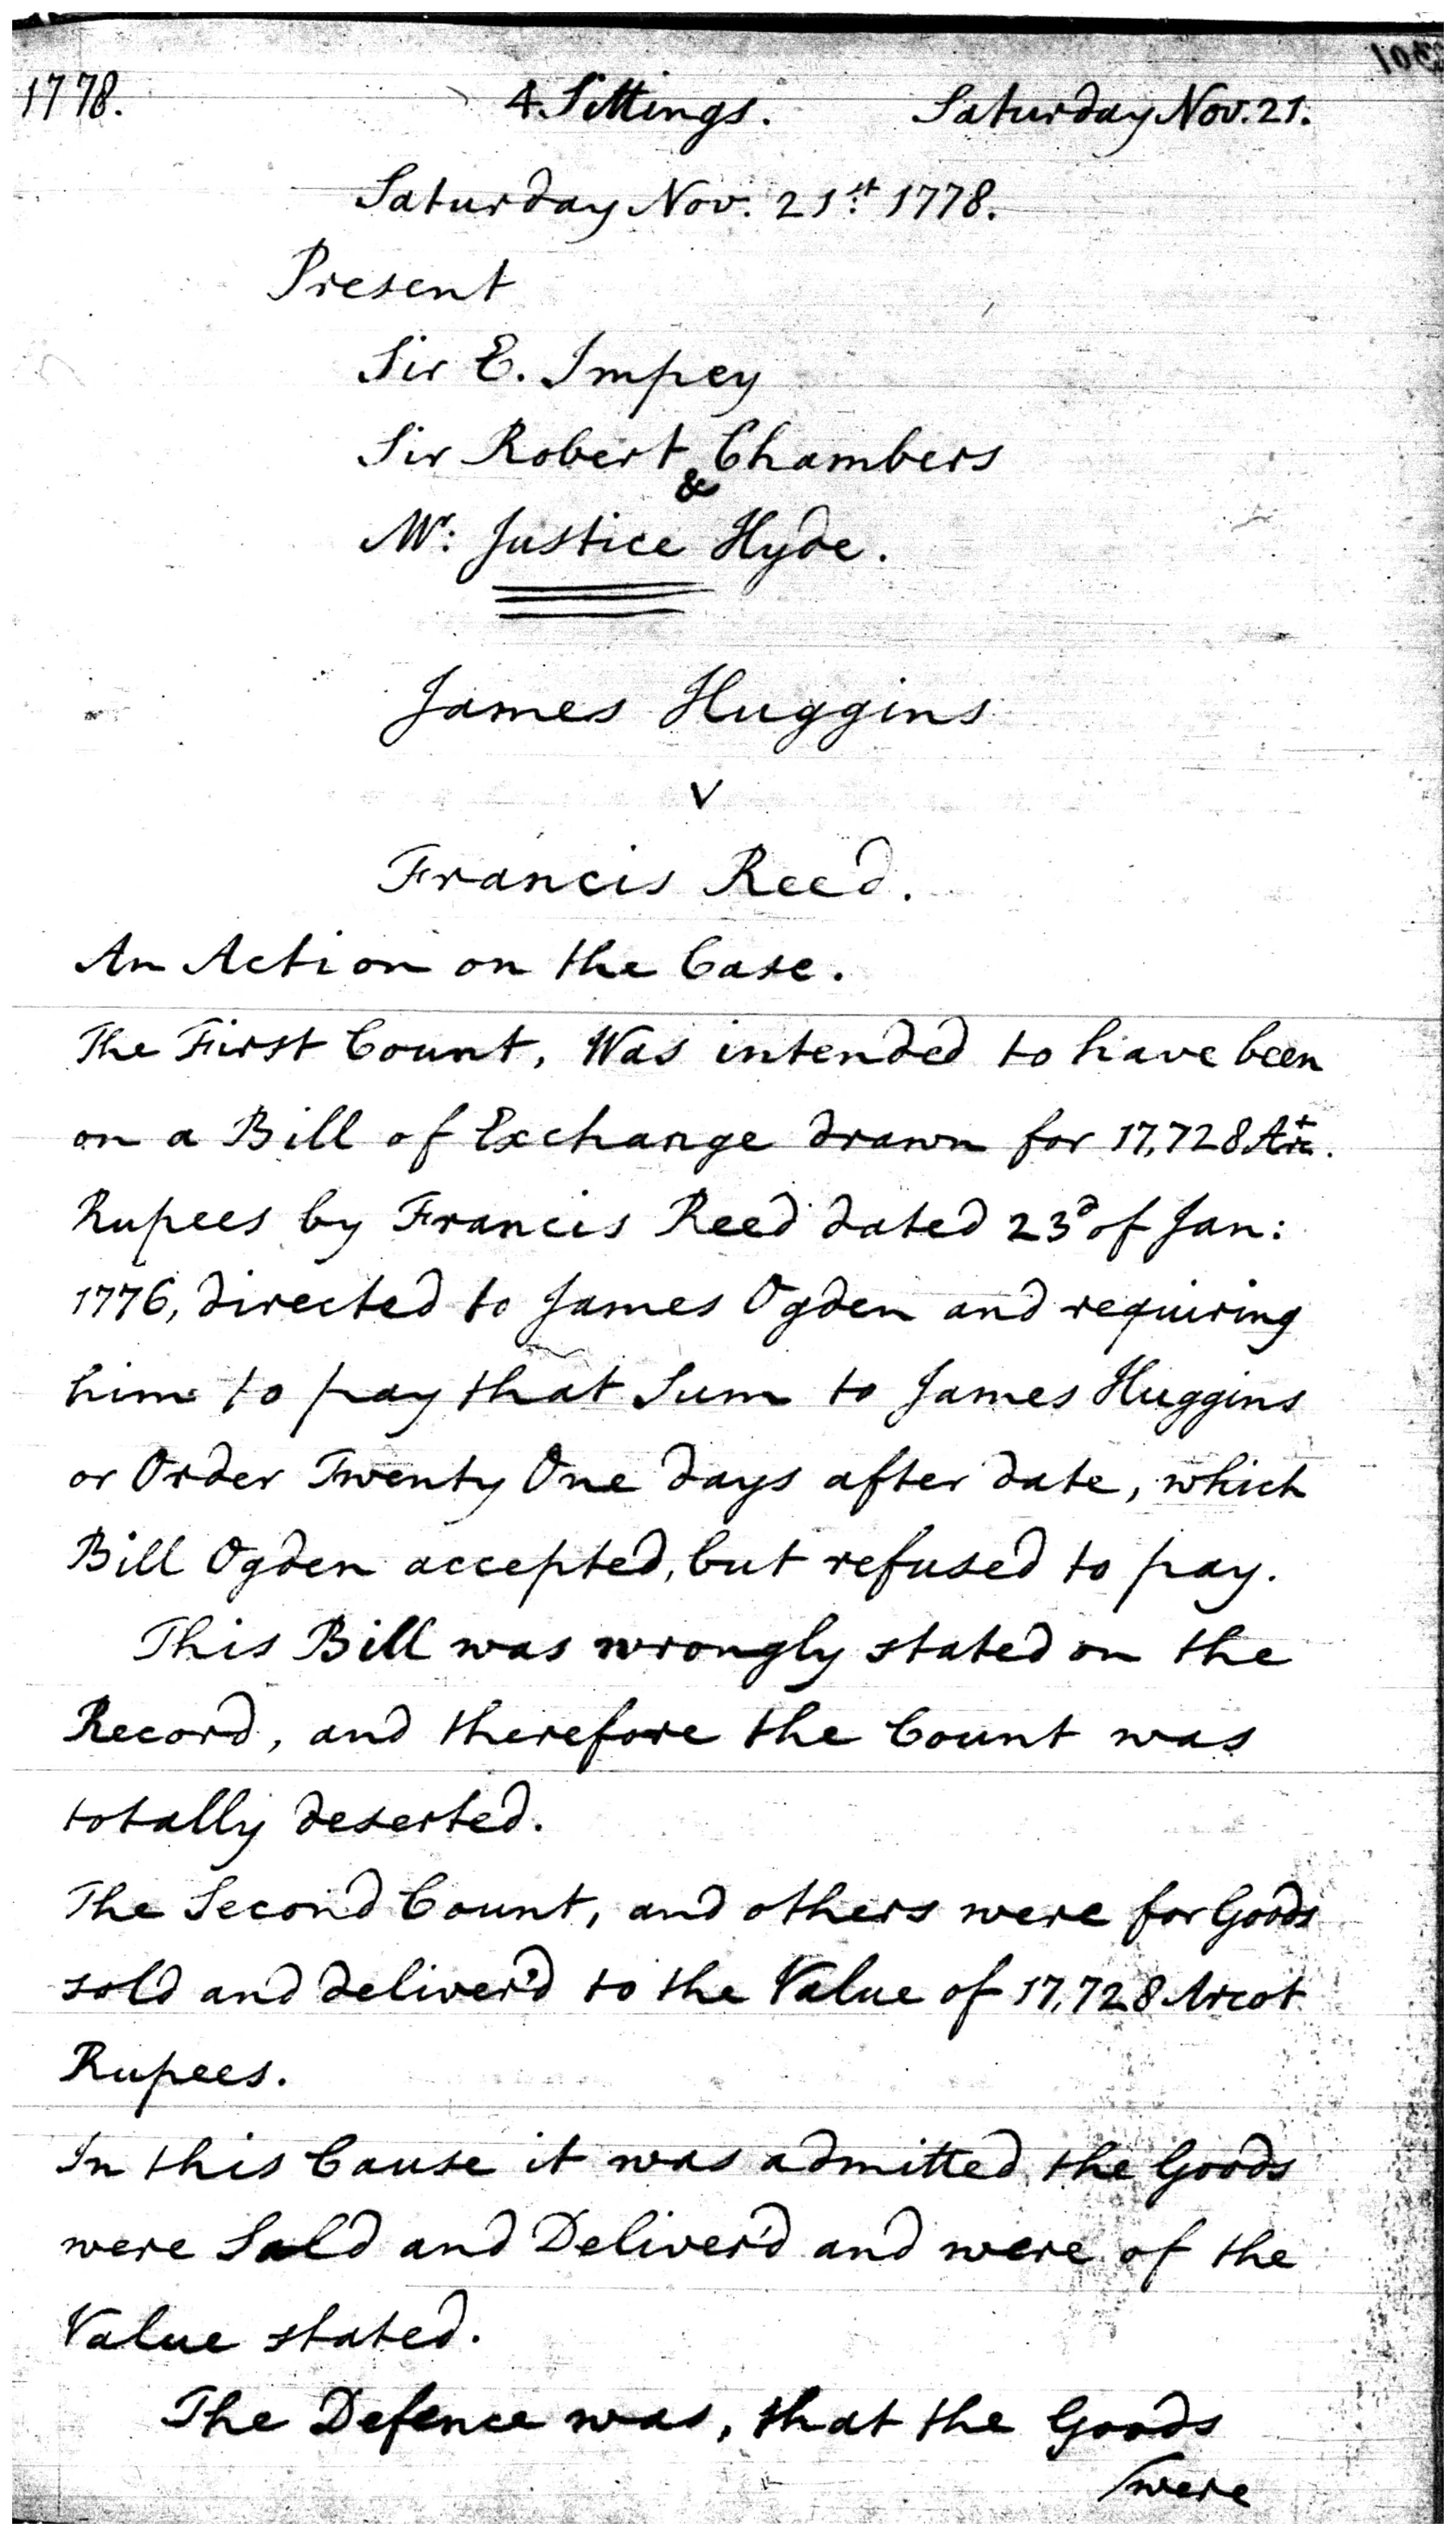 1778. 4. Sittings. Saturday Nov. 21.
Saturday Nov. 21st 1778.
Present
Sir E. Impey
Sir Robert Chambers
&
Mr: Justice Hyde.
James Huggins
v
Francis Reed.
An Action on the Case.
The First Count, Was intended to have been
on a Bill of Exchange drawn for 17,728 Arct.
Rupees by Francis Reed dated 23d of Jan:
1776, directed to James Ogden and requiring
him to pay that Sum to James Huggins
or Order Twenty One days after date, which
Bill Ogden accepted, but refused to pay.
This Bill was wrongly stated on the
Record, and therefore the Count was
totally deserted.
The Second Count, and others were for Goods
sold and deliver'd to the Value of 17,728 Arcot
Rupees.
In this Cause it was admitted the Goods
were Sold and Deliver'd and were of the
Value stated.
The Defence was, that the Goods
/were